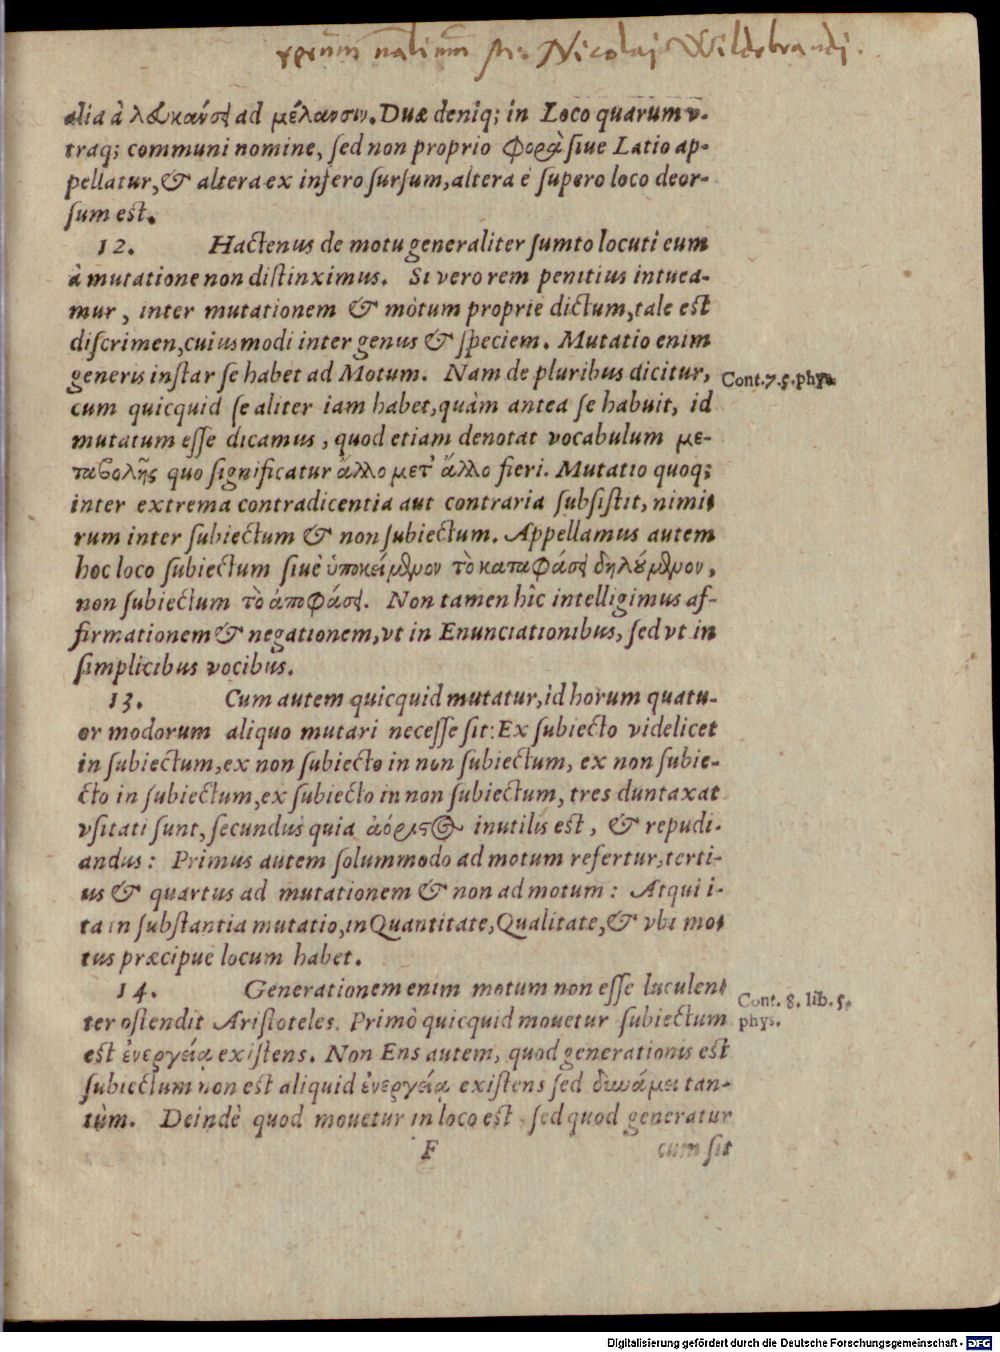 rerum nalium M. Nicolaj Wildebrandi.
alia à λδύκανσς ad μέλανσιν. Duæ deniq; in Loco quarum v-
traq; communi nomine, sed non proprio φορὰ siue Latio ap-
pellatur, & altera ex infero sursum, altera è supero loco deor-
sum est.
12. Hactenus de motu generaliter sumto locuti eum
à mutatione non distinximus. Si vero rem penitius intuea-
mur, inter mutationem & mòtum proprie dictum, tale est
discrimen, cuiusmodi inter genus & speciem. Mutatio enim
generis instar se habet ad Motum. Nam de pluribus dicitur,
Cont. 7. 5. phys.
cum quicquid se aliter iam habet, quàm antea se habuit, id
mutatum esse dicamus, quod etiam denotat vocabulum με-
ταβολῆς quo significatur ἄλλο μετ' ἄλλο fieri. Mutatio quoq;
inter extrema contradicentia aut contraria subsistit, nimi-
rum inter subiectum & non subiectum. Appellamus autem
hoc loco subiectum siuè ὑποκείμενον τὸ καταφάσει δηλούμενον,
non subiectum τὸ ἀποφάσει. Non tamen hîc intelligimus af-
firmationem & negationem, vt in Enunciationibus, sed vt in
simplicibus vocibus.
13. Cum autem quicquid mutatur, id horum quatu-
or modorum aliquo mutari necesse sit: Ex subiecto videlicet
in subiectum, ex non subiecto in non subiectum, ex non subie-
cto in subiectum, ex subiecto in non subiectum, tres duntaxat
vsitati sunt, secundus quia ἀόριστος inutilis est, & repudi-
andus: Primus autem solummodo ad motum refertur, terti-
us & quartus ad mutationem & non ad motum: Atqui i-
ta in substantia mutatio, in Quantitate, Qualitate, & vbi mo-
tus præcipuè locum habet.
14. Generationem enim motum non esse luculen-
Cont. 8. lib. 5.
ter ostendit Aristoteles. Primò quicquid mouetur subiectum
phys.
est ἐνεργείᾳ existens. Non Ens autem, quod generationis est
subiectum non est aliquid ἐνεργείᾳ existens sed δυνάμει tan-
tùm. Deindè quod mouetur in loco est, sed quod generatur
F cum sit
Digitalisierung gefördert durch die Deutsche Forschungsgemeinschaft - DFG